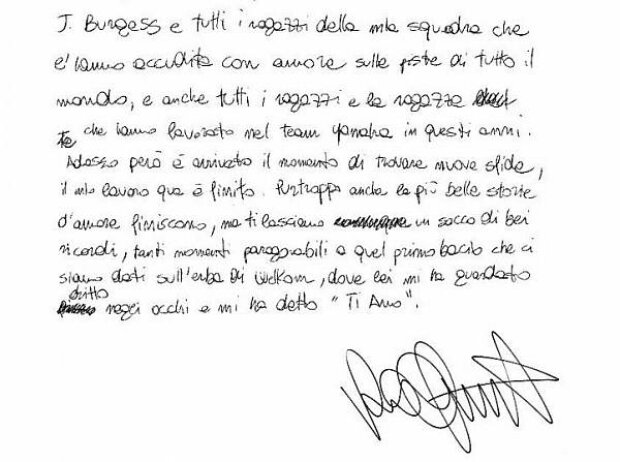 J. Burgess e tutti i ragazzi della mia squadra che
l'hanno accudita con amore sulle piste di tutto il
mondo, e anche tutti i ragazzi e le ragazze
che hanno lavorato nel team Yamaha in questi anni.
Adesso però è arrivato il momento di trovare nuove sfide,
il mio lavoro qua è finito. Purtroppo anche le più belle storie
d'amore finiscono, ma ti lasciano un sacco di bei
ricordi, tanti momenti paragonabili a quel primo bacio che ci
siamo dati sull'erba di Welkom, dove lei mi ha guardato
dritto
negli occhi e mi ha detto "Ti Amo".